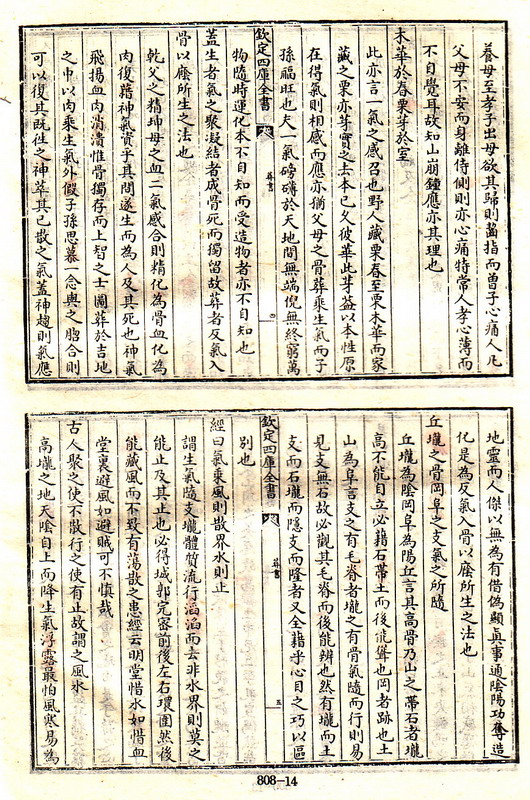 養母至孝子出母欲其歸則齧指而曽子心痛人凡
父母不安而身離侍側則亦心痛特常人孝心薄而
不自覺耳故知山崩鍾應亦其理也
木華於春栗芽於室
此亦言一氣之感召也野人藏栗春至栗木華而家
藏之栗亦芽實之去本已久彼華此芽葢以本性原
在得氣則相感而應亦猶父母之骨葬乘生氣而子
孫福旺也夫一氣磅礴於天地間無端倪無終窮萬
欽定四庫全書
葬書
四
物隨時運化本不自知而受造物者亦不自知也
葢生者氣之聚凝結者成骨死而獨留故葬者反氣入
骨以廕所生之法也
乾父之精坤母之血二氣感合則精化為骨血化為
肉復藉神氣資乎其間遂生而為人及其死也神氣
飛揚血肉消潰惟骨獨存而上智之士圖葬於吉地
之中以内乘生氣外假子孫思慕一念與之脗合則
可以復其既往之神萃其已散之氣蓋神趨則氣應
地靈而人傑以無為有借偽顯真事通陰陽功奪造
化是為反氣入骨以廕所生之法也
丘壠之骨岡阜之支氣之所隨
丘壠為陰岡阜為陽丘言其高骨乃山之帶石者壠
高不能自立必藉石帶土而後能聳也岡者跡也土
山為阜言支之有毛脊者壠之有骨氣隨而行則易
見支無石故必觀其毛脊而後能辨也然有壠而土
支而石壠而隱支而隆者又全藉乎心目之巧以區
欽定四庫全書
葬書
五
別也
經曰氣乘風則散界水則止
謂生氣隨支壠體質流行滔滔而去非水界則莫之
能止及其止也必得城郭完密前後左右環圍然後
能藏風而不致有蕩散之患經云明堂惜水如惜血
堂裏避風如避賊可不慎哉
古人聚之使不散行之使有止故謂之風水
高壠之地天陰自上而降生氣浮露最怕風寒易為
808-14